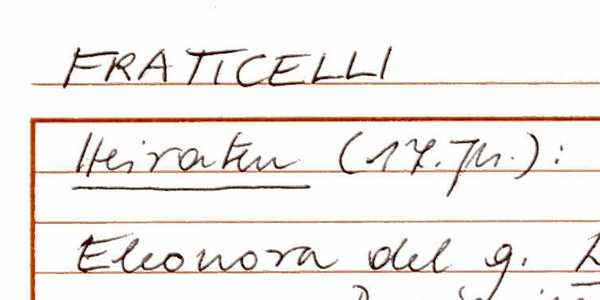 FRATICELLI
Heiraten (17. Jh.):
Eleonora del g.